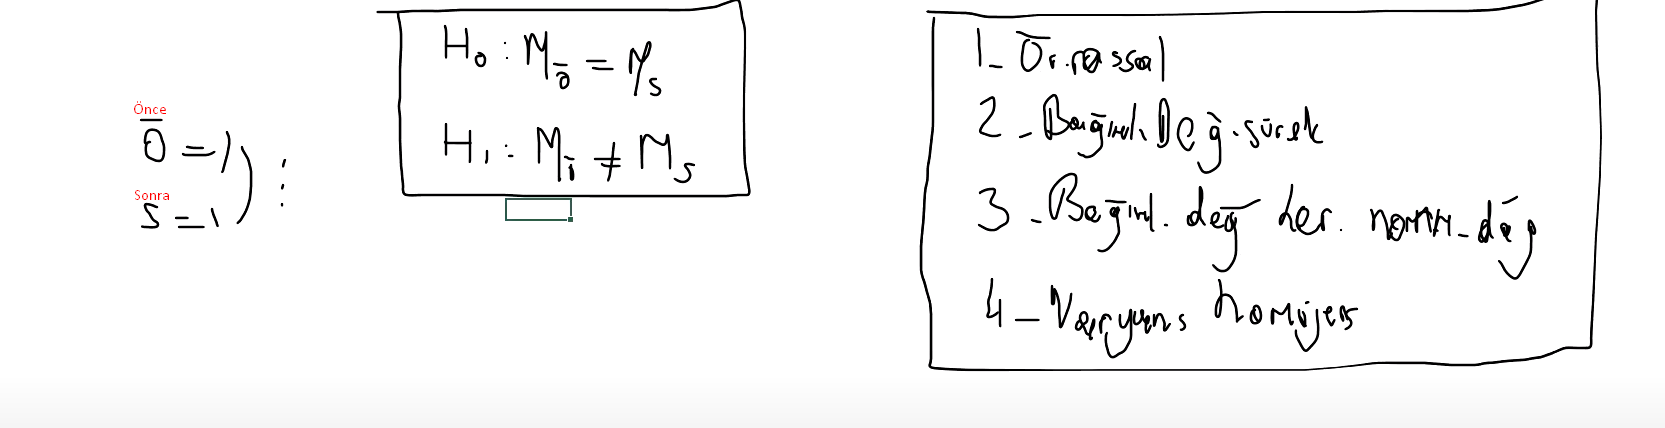 Önce
Ö = 1
Sonra
S = 1
H₀ : Mö = Ms
H₁ : Mö ≠ Ms
1- Ör. rassal
2- Bağıml. Değ. sürek
3- Bağıml. değ her. norm. dağ
4- Varyans homojen